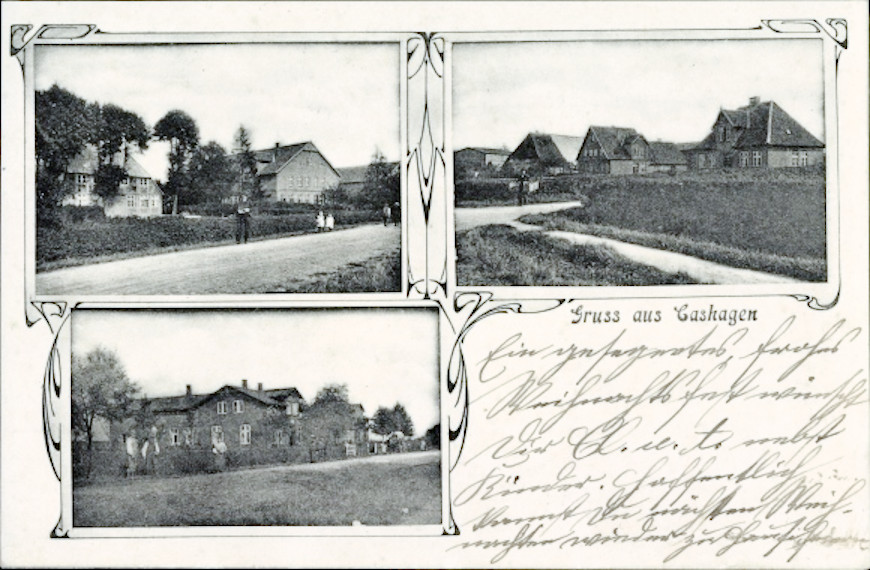 Gruss aus Cashagen
Ein gesegnetes, frohes
Weihnachtsfest wünscht
Dir O. u. T. nebst
Kinder. Hoffentlich
kannst Du nächsten Weih-
nachten wieder zu Hause